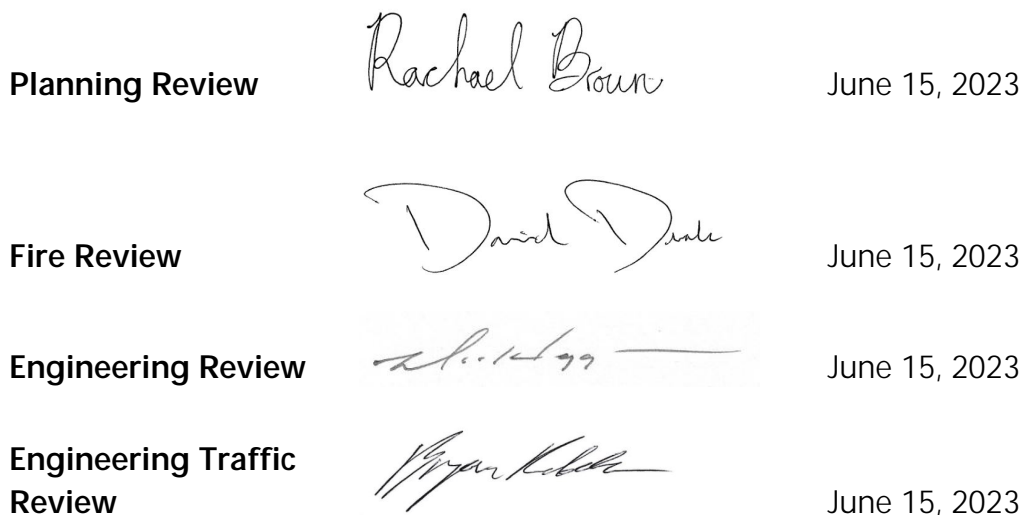 Planning Review Rachael Brown June 15, 2023
Fire Review David June 15, 2023
Engineering Review June 15, 2023
Engineering Traffic
Review Bryan June 15, 2023